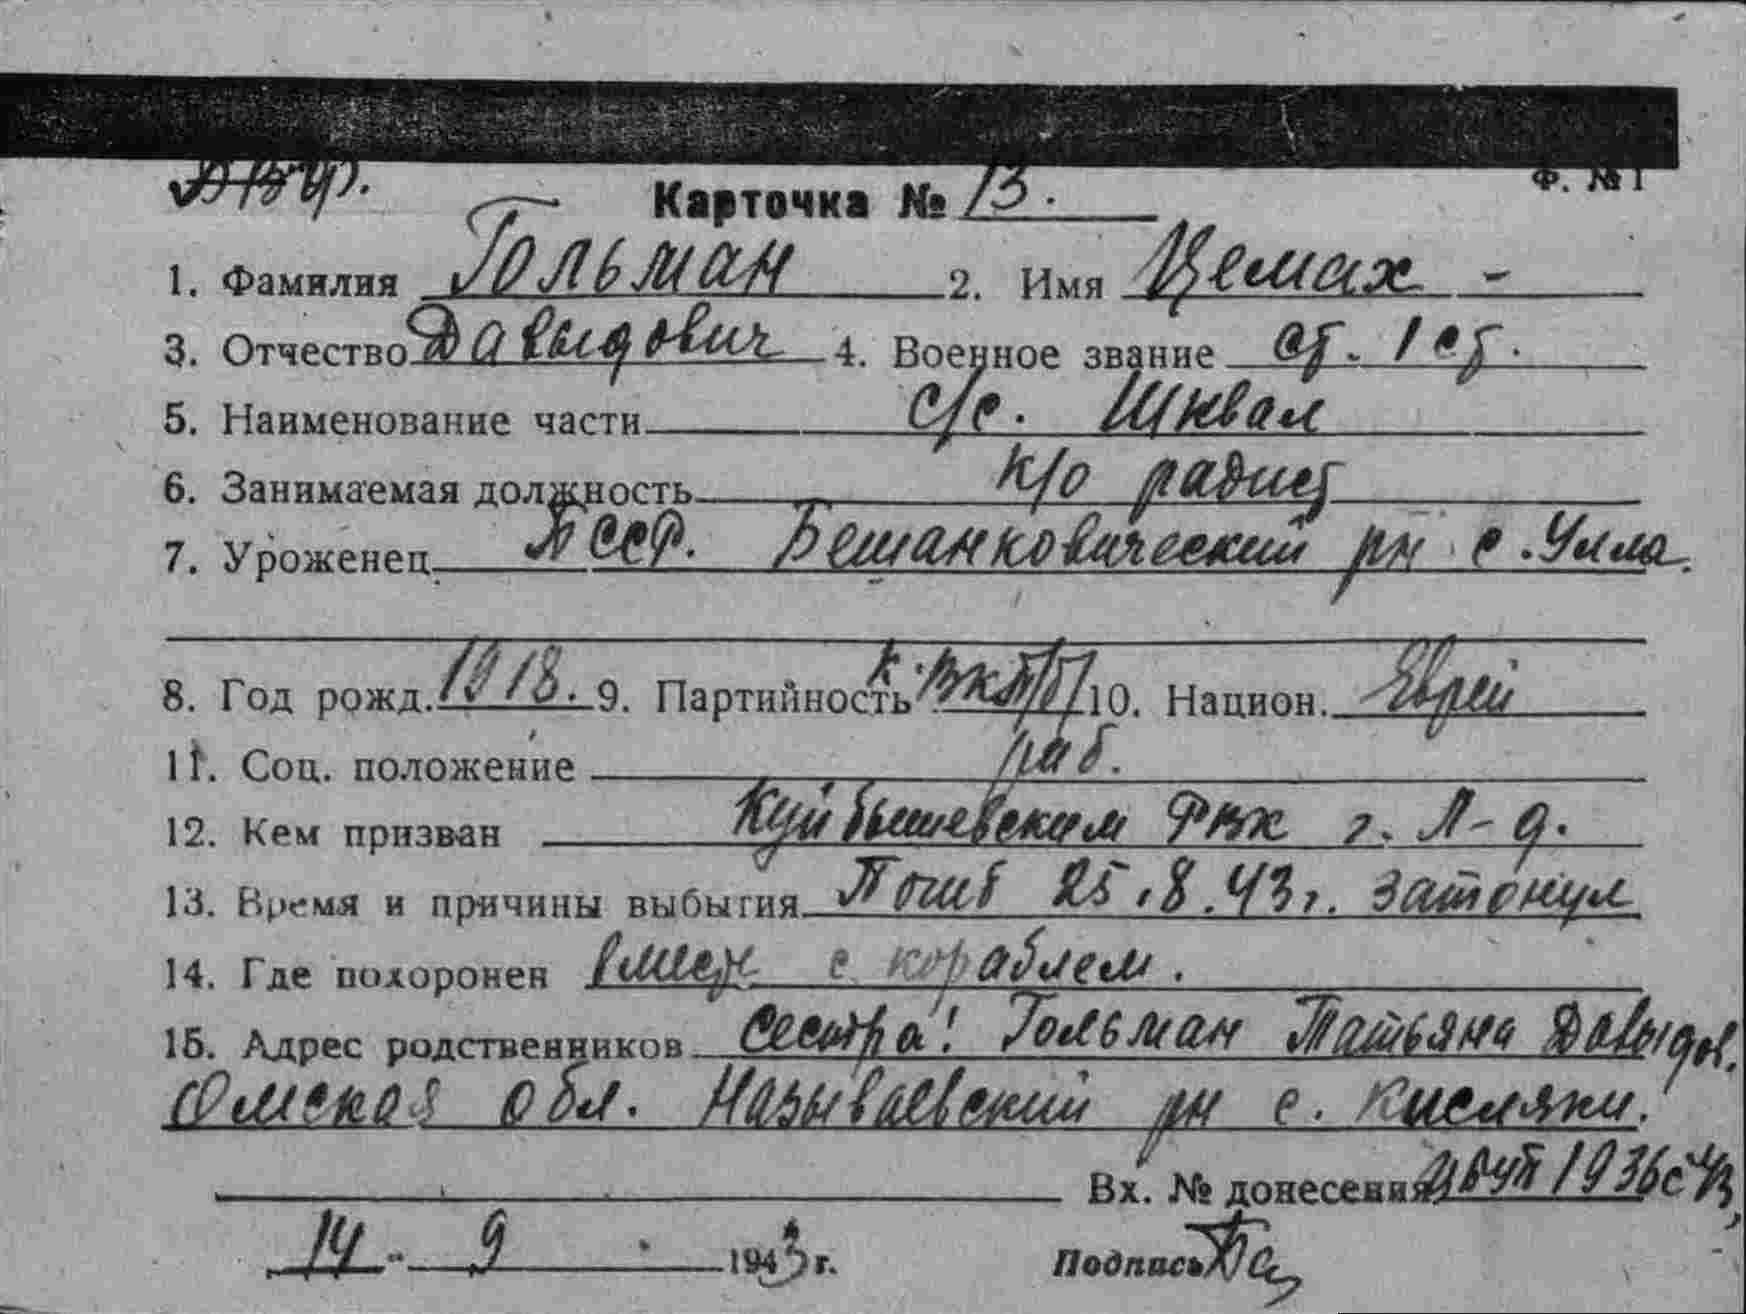 Ф. № 1
Карточка № 13.
1. Фамилия Гольман 2. Имя Цемах -
3. Отчество Давыдович 4. Военное звание ст. 1 ст.
5. Наименование части с/с. Шквал
6. Занимаемая должность к/о радист
7. Уроженец БССР. Бешанковический рн с. Улла.
8. Год рожд. 1918. 9. Партийность к. ВКП/б/ 10. Национ. Еврей
11. Соц. положение раб.
12. Кем призван Куйбышевским РВК г. Л-д.
13. Время и причины выбытия Погиб 25.8.43 г. затонул
14. Где похоронен вместе с кораблем.
15. Адрес родственников Сестра: Гольман Татьяна Давыдов.
Омская обл. Называевский рн с. Кисляки.
Вх. № донесения 1936с
14 - 9 1943 г. Подпись